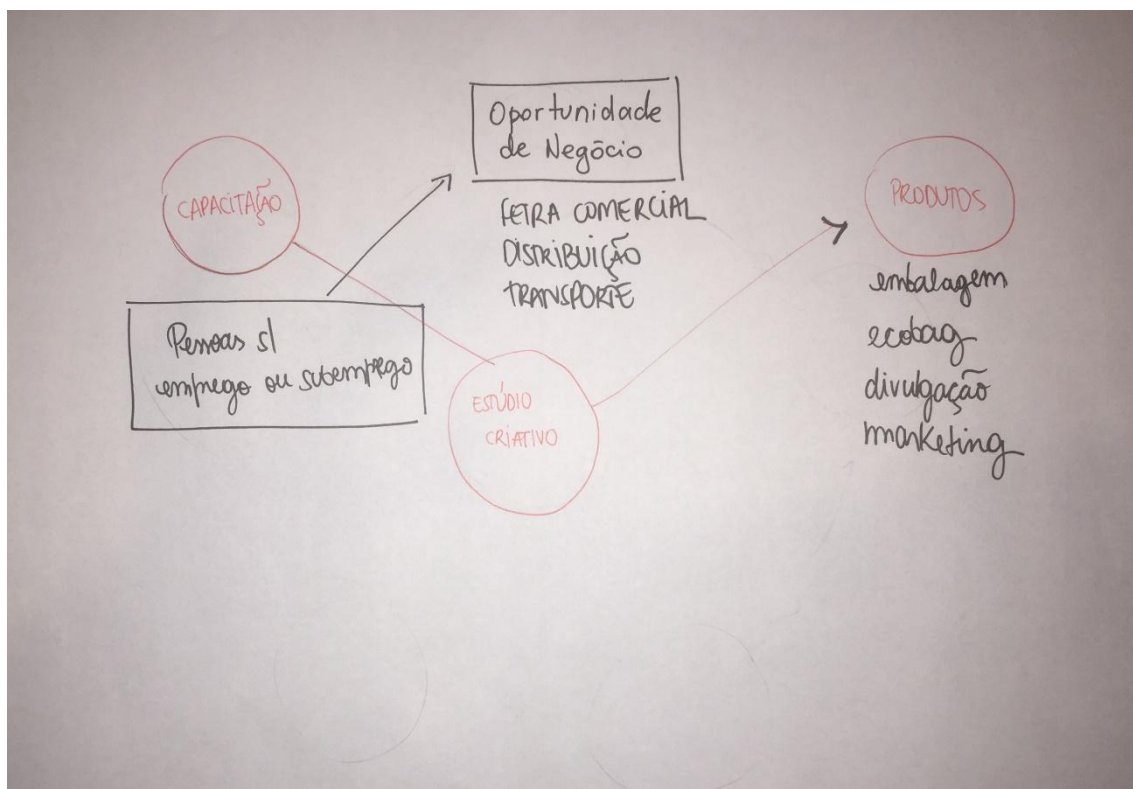 Oportunidade
de Negócio
CAPACITAÇÃO
PRODUTOS
FEIRA COMERCIAL
DISTRIBUIÇÃO
TRANSPORTE
embalagem
ecobag
divulgação
marketing
Pessoas s/
emprego ou subemprego
ESTÚDIO
CRIATIVO